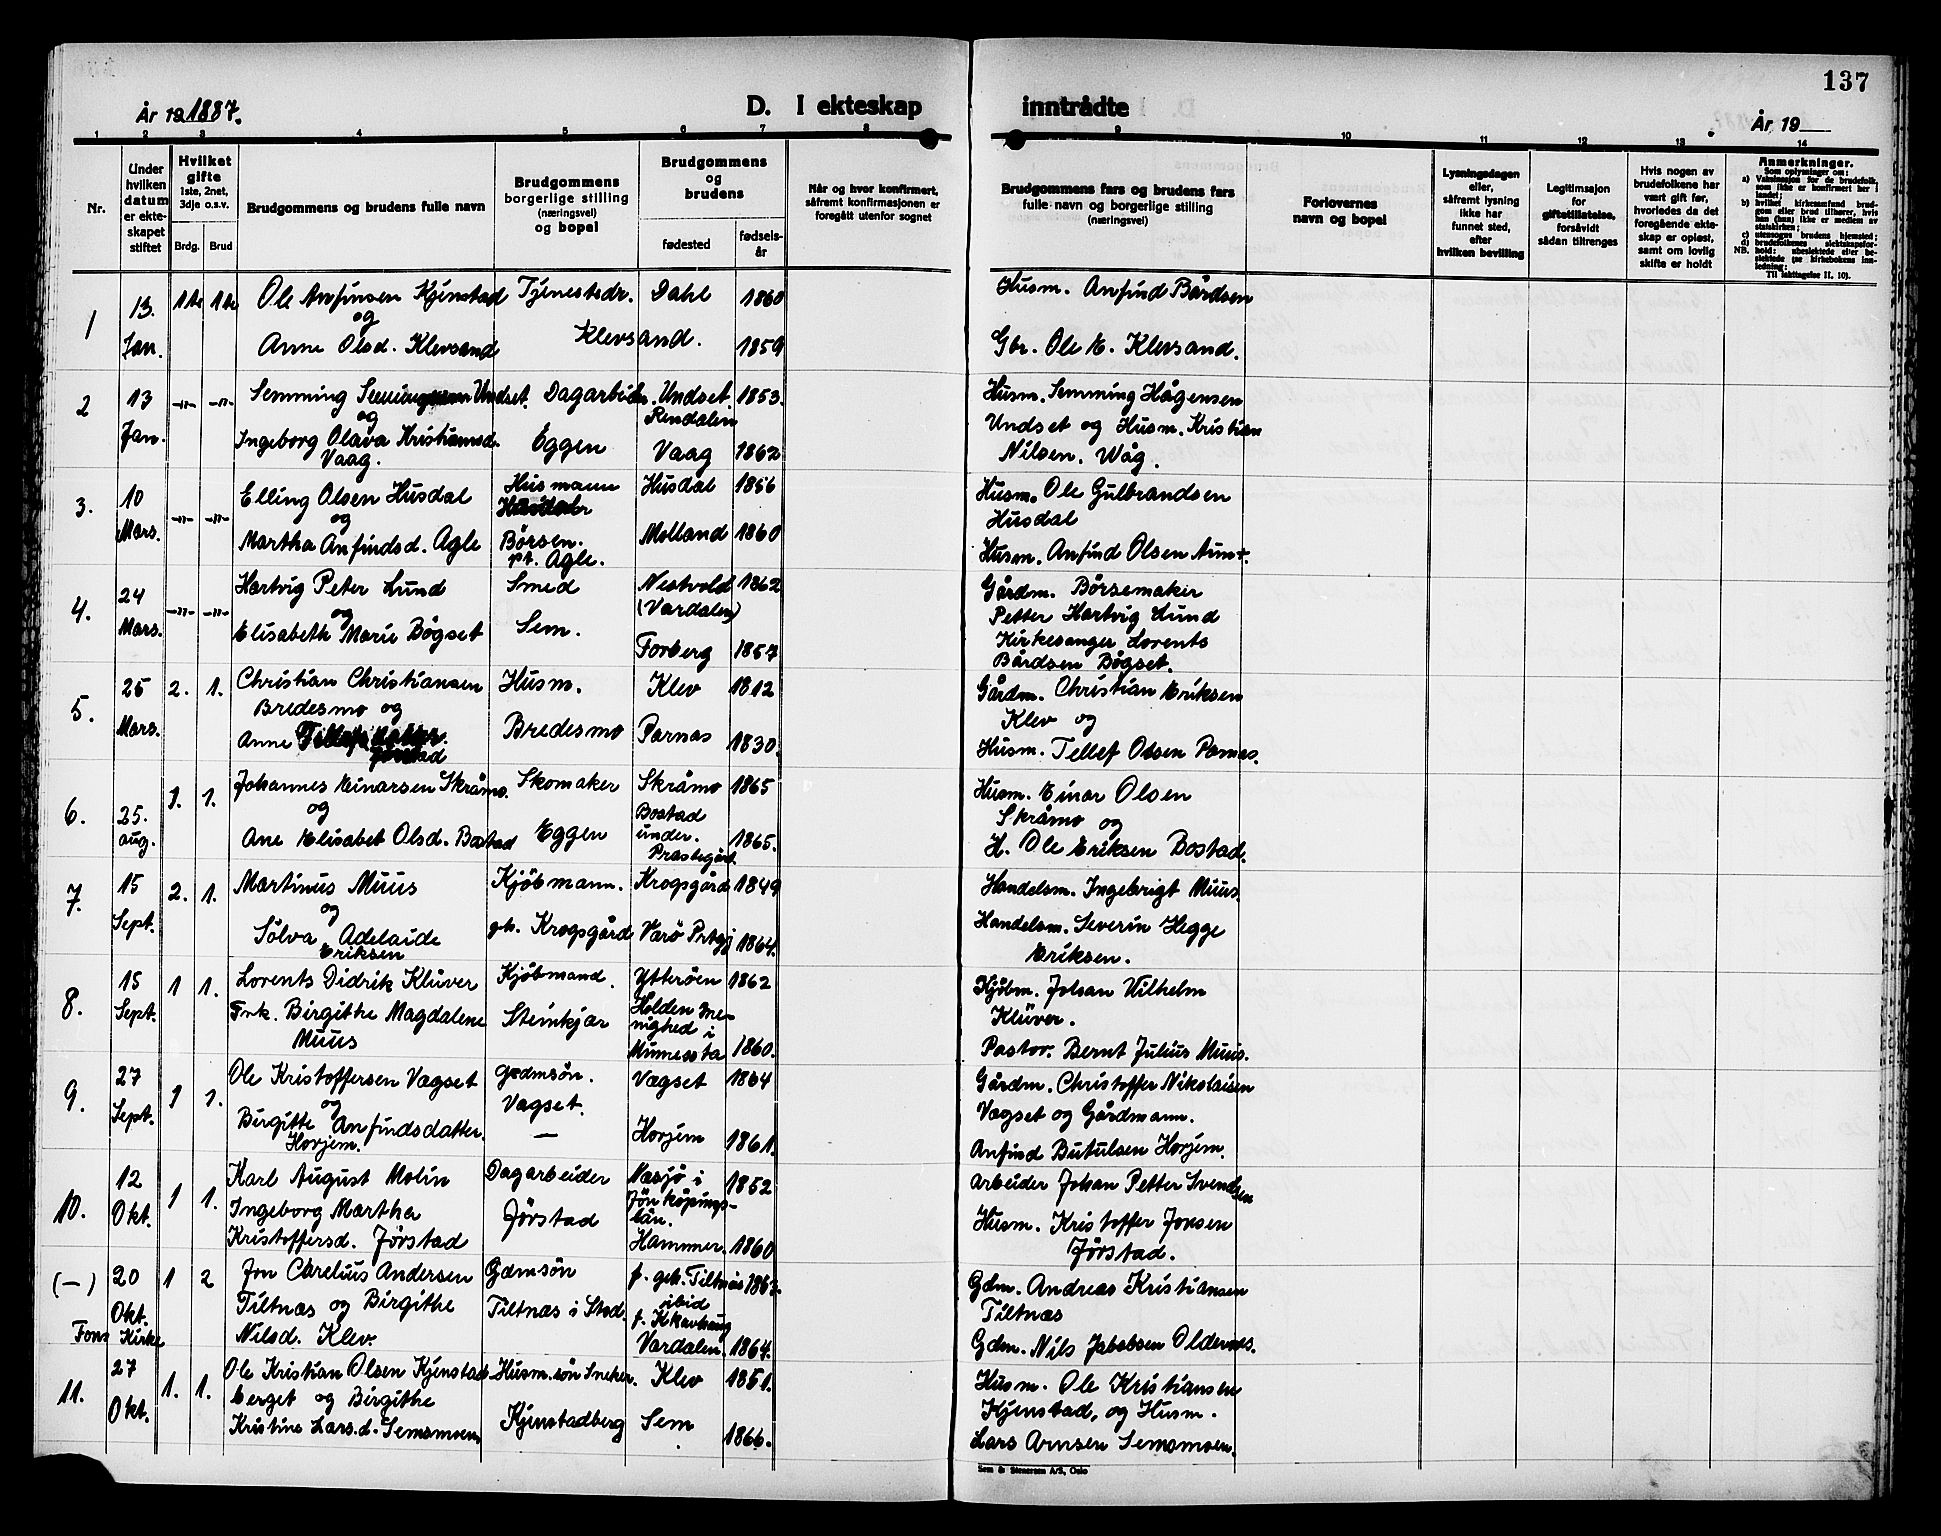 137
År 191887.
D. I ekteskap inntrådte
År 19
1 2 3 4 5 6 7 8 9 10 11 12 13 14
Nr.
Under hvilken datum er ekteskapet stiftet
Hvilket gifte
1ste, 2net, 3dje o.s.v.
Brdg. Brud
Brudgommens og brudens fulle navn
Brudgommens borgerlige stilling (næringsvei) og bopel
Brudgommens og brudens
fødested
fødselsår
Når og hvor konfirmert, såfremt konfirmasjonen er foregått utenfor sognet
Brudgommens fars og brudens fars fulle navn og borgerlige stilling (næringsvei)
Forlovernes navn og bopel
Lysningsdagen eller, såfremt lysning ikke har funnet sted, efter hvilken bevilling
Legitimsajon for giftetillatelse, forsåvidt sådan tiltrenges
Hvis nogen av brudefolkene har vært gift før, hvorledes da det foregående ekteskap er opløst, samt om lovlig skifte er holdt
Anmerkninger.
Som oplysninger om:
1 13. Jan. 1ste 1ste
Ole Anfinsen Kjenstad og Anne Olsd. Klevsand
Tjenestedr. Klevsand.
Dahl 1860
1859
Husm. Anfind Bårdsen
Gbr. Ole E. Klevsand.
2 13 Jan. -"- -"-
Semming Undset. og Ingeborg Olava Kristiansd. Vaag.
Dagarbeider. Eggen
Undset. Rendalen 1853.
Vaag 1862
Husm. Semming Hågensen
Undset og Husm. Kristian
Nilsen. Wåg.
3. 10 Mars. -"- -"-
Elling Olsen Husdal og Martha Anfindsd. Agle
Husmann Børsen. pt. Agle.
Husdal 1856
Molland 1860
Husm. Ole Gulbrandsen
Husdal
Husm. Anfind Olsen
4. 24 Mars. -"- -"-
Hartvig Peter Lund og Elisabeth Marie Bøgset
Smed Sem.
Nestvold (Værdalen) 1862
Forberg 1857
Gårdm. Børsemaker
Petter Hartvig Lund
Kirkesanger Lorents
Bårdsen Bøgset.
5. 25 Mars. 2. 1.
Christian Christiansen Bredesmo og Anne
Husm. Bredesmo
Klev 1812
Parnas 1830.
Gårdm. Christian Eriksen
Klev og
Husm. Tellef Olsen Parnas.
6. 25. aug. 1. 1.
Johannes Einarsen Skråmo. og Ane Elisabet Olsd. Bostad
Skomaker Eggen
Skråmo 1865
Bostad under. Præstegård. 1865.
Husm. Einar Olsen
Skråmo og
H. Ole Eriksen Bostad.
7. 15 Sept. 2. 1.
Martinus Muus og Sølva Adelaide Eriksen
Kjøbmann. gh. Krogsgård
Krogsgård 1849
Værö Prtgj 1864.
Handelsm. Ingebrigt Muus.
Handelsm. Severin Hegge
Eriksen.
8. 15 Sept. 1 1.
Lorents Didrik Klüver
Frk. Birgithe Magdalene Muus
Kjöbmand. Steinkjær
Ytterøen 1862
Holden menighed i Minnesota 1860.
Kjøbm. Johan Vilhelm
Klüver.
Pastor. Bernt Julius Muus.
9. 27 Sept. 1 1.
Ole Kristoffersen Vægset og Birgitte Anfindsdatter. Horjem.
Gårdmsøn. Vægset. —
Vægset 1864
Horjem 1861.
Gårdm. Christoffer Nikolaisen
Vægset og Gårdmann.
Anfind Butulsen Horjem.
10. 12 Okt. 1 1.
Karl August Molin
Ingeborg Martha Kristoffersd. Jørstad
Dagarbeider Jørstad
Næsjø i Jönköpings-län. 1852
Hammer. 1860
arbeider Johan Petter Svendsen
Husm. Kristoffer Jonsen
Jørstad.
(—) 20 Okt. Fons Kirke 1 2
Jon Carelius Andersen Tiltnæs og Birgithe Nilsd. Klev.
Gdmsön Tiltnæs i Stod.
f. geh. Tiltnæs ibid 1863.
Værdalen. 1864.
Gdm. Andreas Kristiansen
Tiltnæs
Gdm. Nils Jakobsen Oldernæs.
11. 27 Okt. 1. 1.
Ole Kristian Olsen Kjenstadberget og Birgithe Kristine Larsd. Semsmoen
Husm.søn Sneker. Kjenstadberg
Klev 1851.
Sem 1866.
Husm. Ole Kristiansen
Kjenstad, og Husm.
Lars Arnsen Semsmoen.
Sem & Stenersen A/S, Oslo